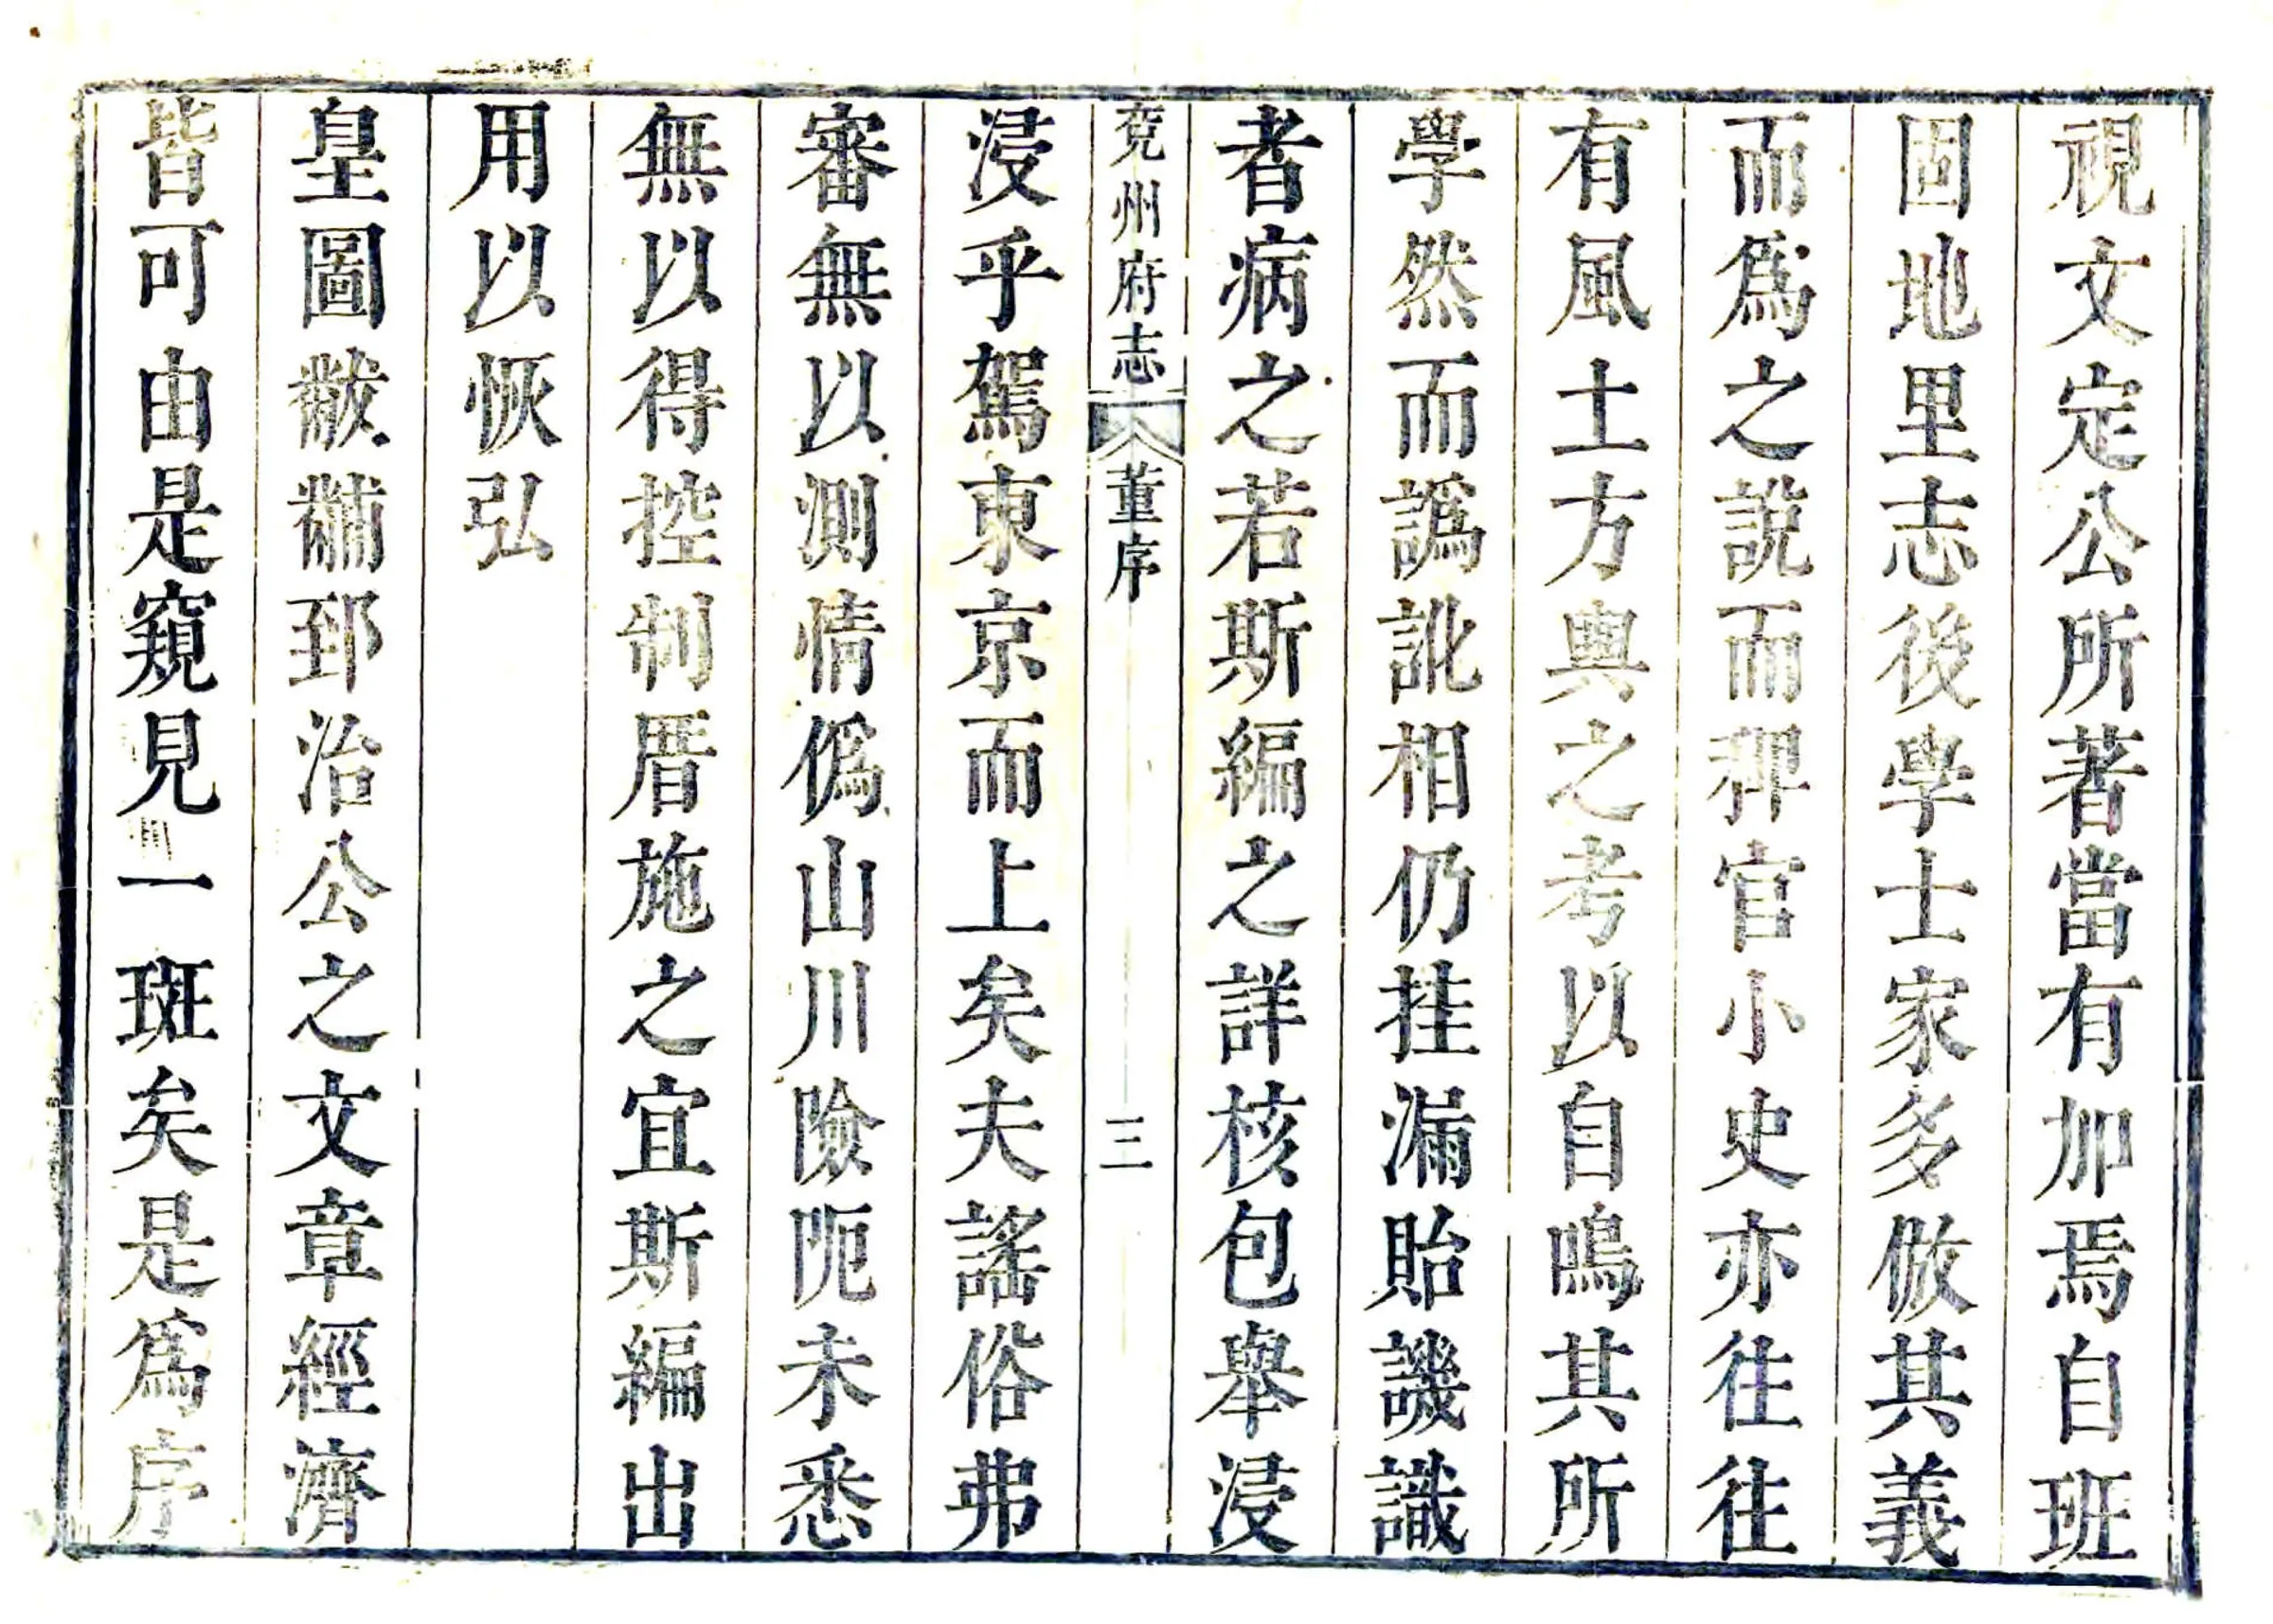 視文定公所著當有加焉自班
固地里志後學士家多倣其義
而爲之說而稗官小史亦往往
有風土方輿之考以自鳴其所
學然而譌訛相仍挂漏貽譏識
者病之若斯編之詳核包舉浸
兖州府志 董序 三
浸乎駕東京而上矣夫謠俗弗
審無以測情僞山川險阨未悉
無以得控制厝施之宜斯編出
用以恢弘
皇圖黻黼郅治公之文章經濟
皆可由是窺見一斑矣是爲序